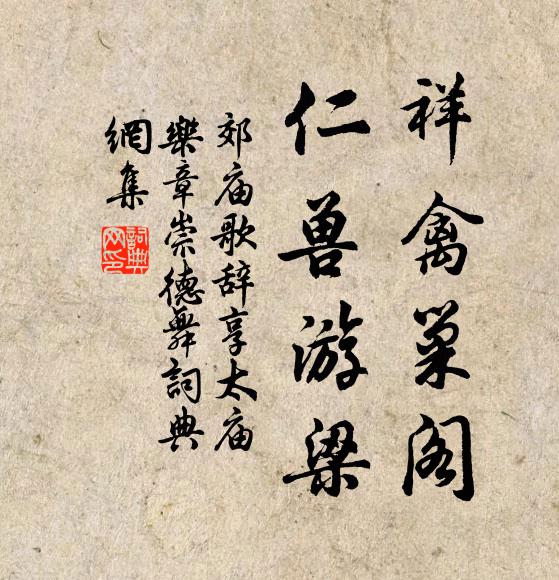 祥禽巢阁
仁兽游梁
郊庙歌辞享太庙
樂章崇德舞詞典
網集
詞典网印